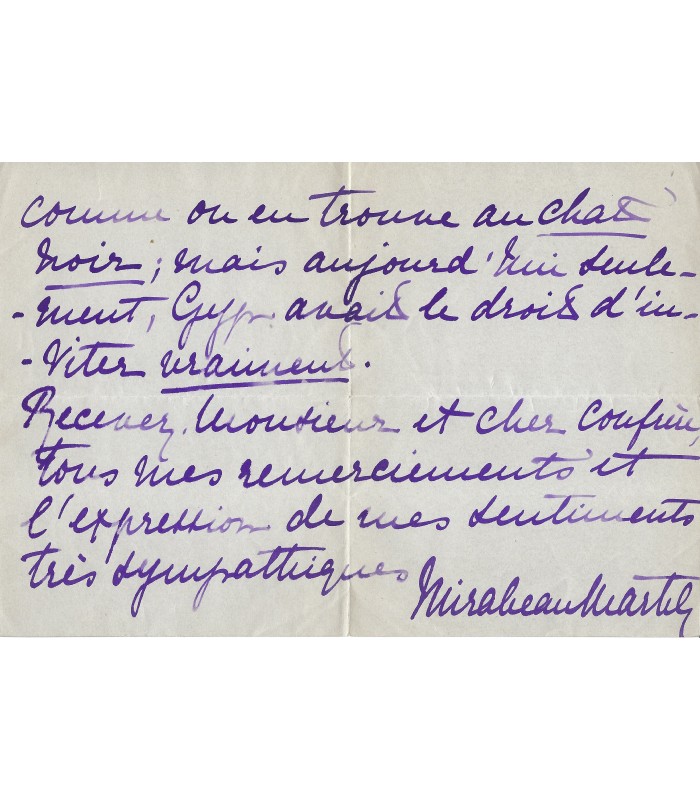 comme on en trouve au chat
noir; mais aujourd'hui seule-
-ment, Gyp avait le droit d'in-
-viter vraiment.
Recevez, Monsieur et cher confrère,
tous mes remerciements et
l'expression de mes sentiments
très sympathiques
Mirabeau Martel